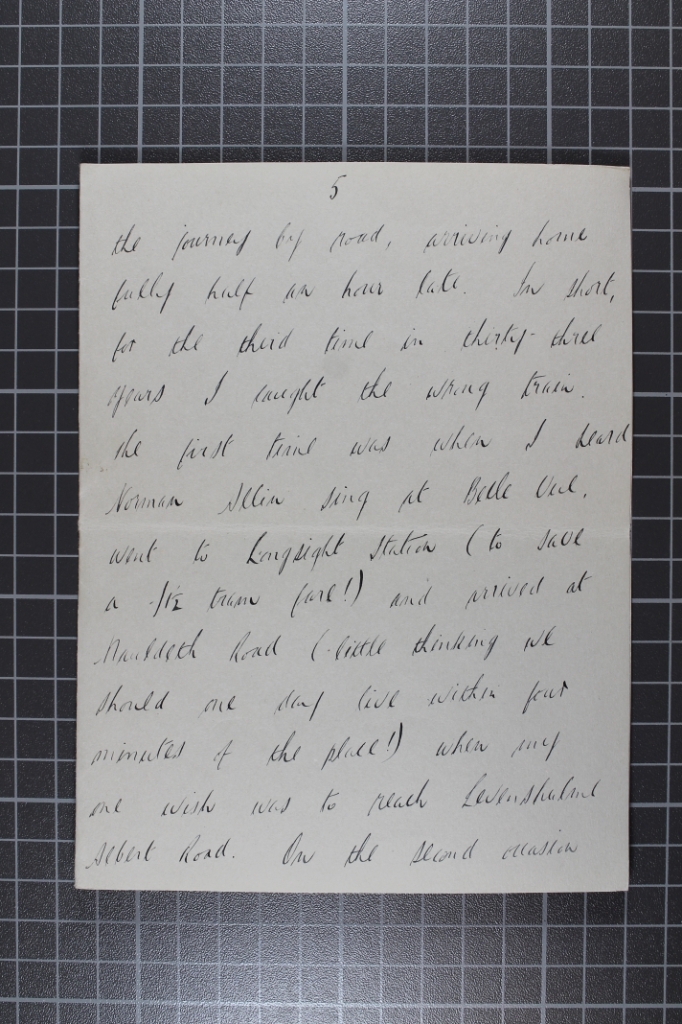 5
the journey by road, arriving home
fully half an hour late. In short,
for the third time in thirty-three
years I caught the wrong train.
The first time was when I heard
Norman Allin sing at Belle Vue,
went to Longsight Station (to save
a -/1½ tram fare!) and arrived at
Mauldeth Road (-little thinking we
should one day live within four
minutes of the place!) when my
one wish was to reach Levenshulme
Albert Road. On the second occasion